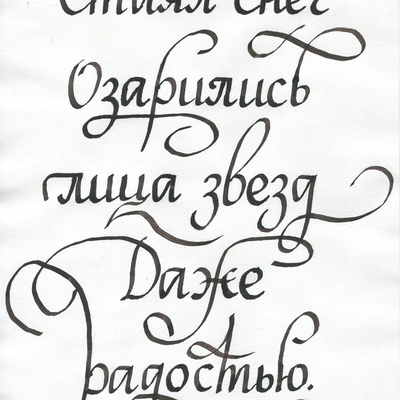 Стаял снег
Озарились
лица звезд
Даже
радостью.